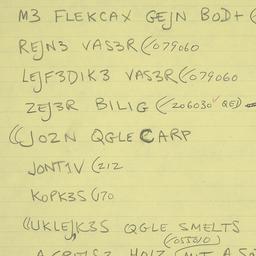 M3 FLEKCAX GEJN BOD+ (
REJN3 VAS3R (/079060
LEJF3DIK3 VAS3R (/079060
ZEJ3R BILIG (/206030 ✓ QED)
((JOZN QGLE CARP
JONT1V (212
KOPK3S (/70
(UKLEJK3S QGLE SMELTS
(055010)